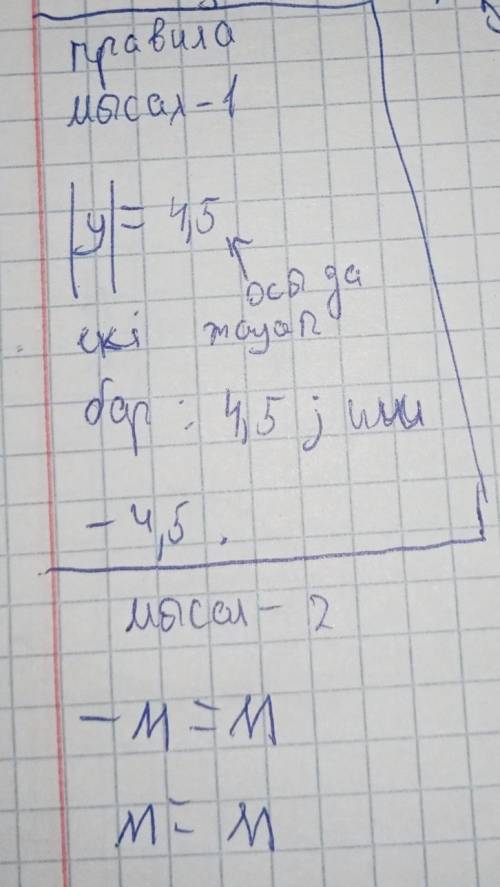 правила
мысал-1
|y| = 4,5
осы да
екі жауап
бар : 4,5 ; или
- 4,5 .
мысал - 2
- м = м
м = м